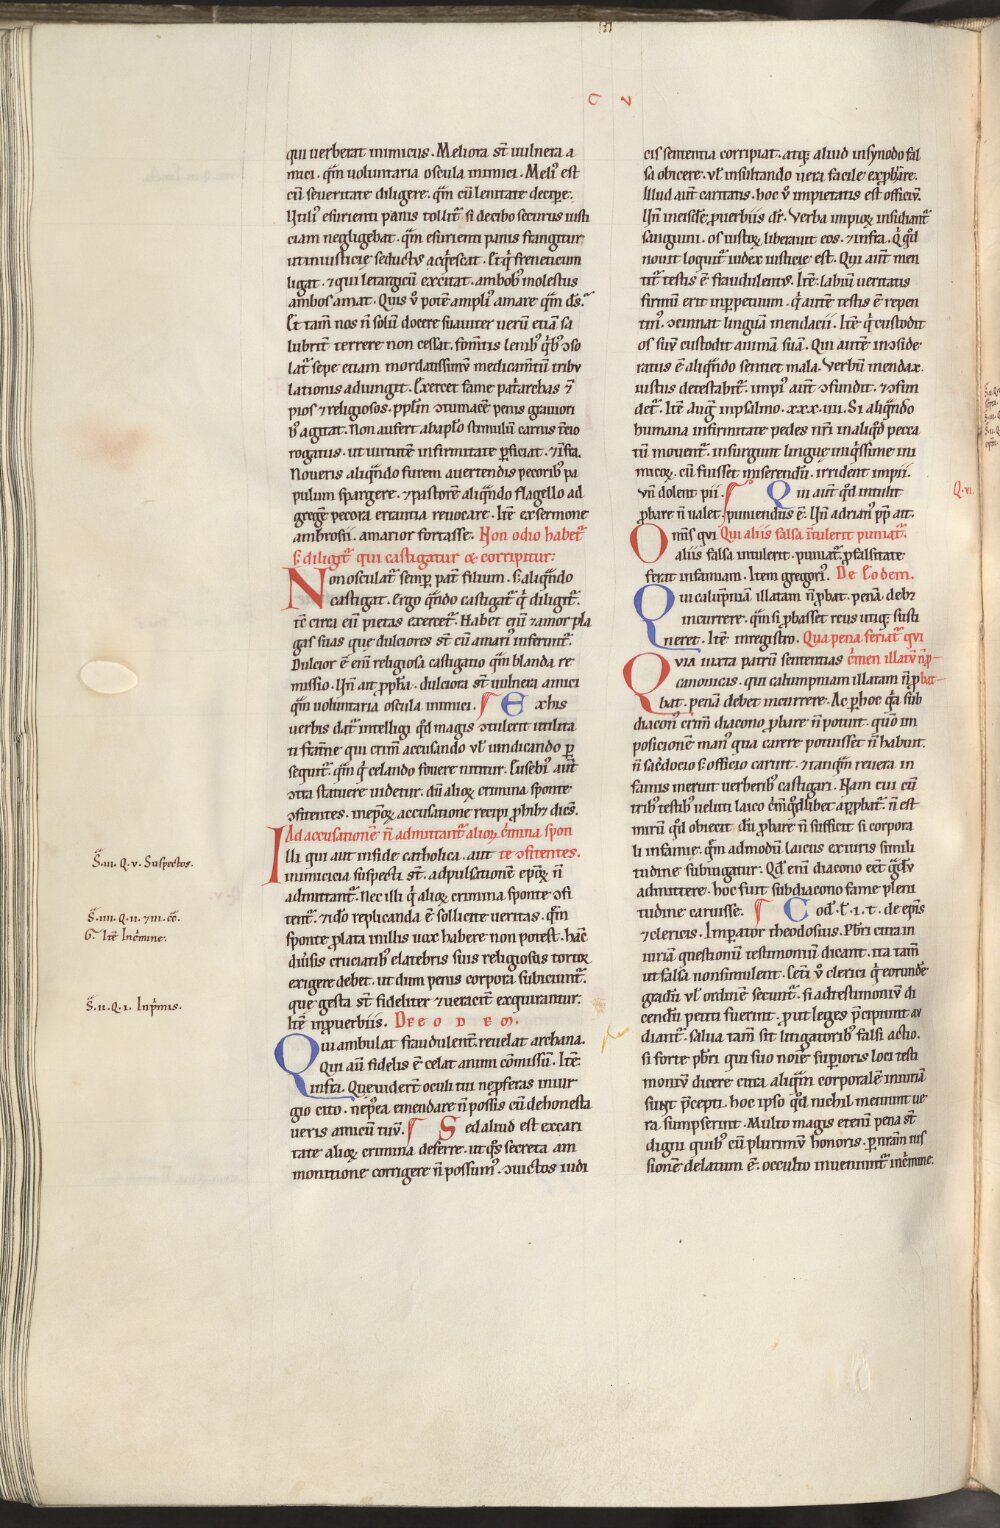 qui uerberat inimicus. Meliora st̄ uulnera a
mici. qm̄ uoluntaria oscula inimici. Meli᷒ est
cū seueritate diligere. qm̄ cū lenitate decipe.
Utili᷒ esurienti panis tollit᷑ si de cibo securus iusti
ciam negligebat. qm̄ esurienti panis frangitur
ut iniusticie seductus acq̇escat. Et q̇ freneticum
ligat. ⁊ qui letargicū excitat. ambob᷒ molestus
ambos amat. Quis v̊ potē ampli᷒ amare qm̄ ds̄.
Et tam̄ nos n̄ solū docere suauiter uerū etiā sa
lubrit̄ terrere non cessat. fom̄tis lenib᷒ q̇b᷒ ɔso
lat᷑ sepe etiam mordatissimū medicam̄tū tribu
lationis adiungit. Exercet fame pat᷑archas ⁊
pios ⁊ religiosos. pplm̄ ɔtumacē penis grauiori
b᷒ agitat. Non aufert ab aplo stimulū carnis t̄cio
rogatus. ut uirtutē infirmitate ꝑficiat. ⁊ īfra.
Noueris aliqn̄do furem auertendis pecorib᷒ pa
pulum spargere. ⁊ pastorē aliqn̄do flagello ad
gregē pecora errantia reuocare. Itē ex sermone
ambrosii. amarior fortasse. Non odio habet᷑
s; diligit᷑ qui castigatur ⁊ corripitur:
Non osculat᷑ semꝑ pat̄ filium. s; aliqn̄do
castigat. Ergo qn̄do castigat᷑ q̇ diligit᷑.
tc̄ circa eū pietas exercet᷑. Habet eni̅ ⁊ amor pla
gas suas que dulciores st̄ cū amari᷒ inferunt᷑.
Dulcior ē eni̅ religiosa castigatio qm̄ blanda re
missio. Un̄ ait ꝓph̄a. dulciora st̄ uulnera amici
qm̄ uoluntaria oscula inimici. ¶ Ex his
uerbis dat᷑ intelligi qd̄ magis ɔtulerit utilita
ti fratr̄ne qui crim̄ accusando ul᷒ uindicando ꝑ
sequit᷑. qm̄ q̇ celando fouere nititur. Eusebi᷒ aut̄
ɔtra statuere uidetur. dū alioꝝ crimina sponte
ɔfitentes. in ep̄oꝝ accusatione recipi ꝓhib᷒ dices.
Ad accusationē n̄ admittant᷑ alioꝝ c̄mina spon
Illi qui aut in fide catholica. aut te ɔfitentes.
inimicicia suspecti st̄. ad pulsationē ep̄oꝝ n̄
admittant᷑. Nec illi q̇ alioꝝ crimina sponte ɔfi
tent᷑. ⁊ ido̅ replicanda ē sollicite ueritas. qm̄
sponte ꝓlata in illis uox habere non potest. hāc
diu̅sis cruciatib᷒ e latebris suis religiosus tortoꝝ
exigere debet. ut dum penis corpora subiciunt᷑.
que gesta st̄ fideliter ⁊ ueracit̄ exquirantur.
Itē in ꝓuerbiis. DE EODEM.
Qui ambulat fraudulent̄. reuelat archana.
Qui au̅ fidelis ē celat animi cōmissū. Itē
infra. Que uidert̄ oculi tui ne ꝓferas in iur
gio cito. ne p᷒ea emendare n̄ possis cū dehonesta
ueris amicū tuū. ¶ Sed aliud est ex cari
tate alioꝝ crimina deferre. ut q᷒s secreta am
monitione corrigere n̄ possum᷒. ɔuictos iudi
cis sententia corripiat. atq; aliud in synodo fal
sa obicere. ul᷒ insultando uera facile exꝓbare.
Illud aut̄ caritatis. hoc v̊ impietatis est officiū.
Un̄ in eisd̄e ꝓuerbiis dr̄. Verba impioꝝ insidiant᷑
sanguini. os iustoꝝ liberauit eos. ⁊ infra. Q̇ qd̄
nouit loquit᷑ iudex iusticie est. Qui aut̄ men
tit᷑ testis ē fraudulentus. Itē: labiū ueritatis
firmū erit in ꝑpetuum. q̇ autē testis ē repen
tin᷒. ɔcinnat linguā mendacii. Itē q̇ custodit
os suū custodit animā suā. Qui autē inɔside
ratus ē aliqn̄do sentiet mala. Verbū mendax.
iustus detestabit᷑. impi᷒ aut̄ ɔfundit. ⁊ ɔfun
det᷑. Itē Aug᷒ in psalmo. x.x.x.iiii. Si aliqn̄do
humana infirmitate pedes nr̄i in aliqd̄ pecca
tū mouent᷑. insurgunt lingue iniq̇ssime ini
micoꝝ. cū fuisset miserendū. irrident impii.
un̄ dolent pii. ¶ Qui aut̄ qd̄ intulit
ꝓbare n̄ ualet. puniendus ē. Un̄ adrian᷒ pp̄ ait.
Om̄s qui Qui aliis falsa ītulerit puniat᷑.
aliis falsa intulerit. puniat᷑. ꝓ falsitate
ferat infamiam. Item gregori᷒. De Eodem.
Qui calūpniā illatam n̄ ꝓbat. penā debꝫ
incurrere. qm̄ si ꝓbasset reus utiq; susti
neret. Itē in registro. Qua pena feriat᷑ qui
Quia iuxta patrū sententias c̄men illatū n̄ ꝓ-
canonicas. qui calumpniam illatam n̄ ꝓ bat-
bat. penā debet incurrere. Ac ꝑ hoc q̄a sub
diacon᷒ crim̄ diacono ꝓbare n̄ potuit. quo̅ im
posicionē man᷒ qua carere potuisset n̄ habuit.
n̄ sac̄docio s; officio caruit. ⁊ tanqm̄ reuera in
famis meruit uerberib᷒ castigari. Nam cui cū
trib᷒ testib᷒ ueluti laico c̄m̄ qd̄libet ap̄ꝓbat᷑. n̄ est
mirū qd̄ obiecit dū ꝓbare n̄ sufficit si corpora
li infamie. qm̄ admodū laicus ex iuris simili
tudine subiugatur. Qd̄ eni̅ diacono eet̄ g̊dū
admittere. hoc fuit subdiacono fame pleni
tudine caruisse. ¶ Cod᷒. l᷒. i. t. de ep̄is
⁊ clericis. Imꝑator theodosius. Pbr̄i citra in
iuriā questionū testimoniū dicant. ita tam̄
ut falsa non simulent. Cet̄i v̊ clerici q̇ eorundē
gradū ul᷒ ordinē secunt᷑. si ad testimoniū di
cendū petiti fuerint. ꝓut leges p̄cipiunt au
diant᷑. salua tam̄ sit litigatorib᷒ falsi actio.
si forte pbr̄i qui suo noīe suꝑioris loci testi
moniū dicere citra aliqm̄ corporalē iniuriā
sunt p̄cepti. hoc ipso qd̄ nichil metuunt ue
ra supp̄serint. Multo magis etenī pena st̄
digni quib᷒ cū plurimū honoris. ꝑ nr̄am ius
sionē delatum ē. occulto inueniunt᷑ in c̄mine.
S̄. iii. Q. v. Suspectos.
S̄. iiii. Q. ii. ⁊ iii. cc̄.
G. Itē In c̄mine.
S̄. ii. Q. i. In p̄mis.
Q. vi.